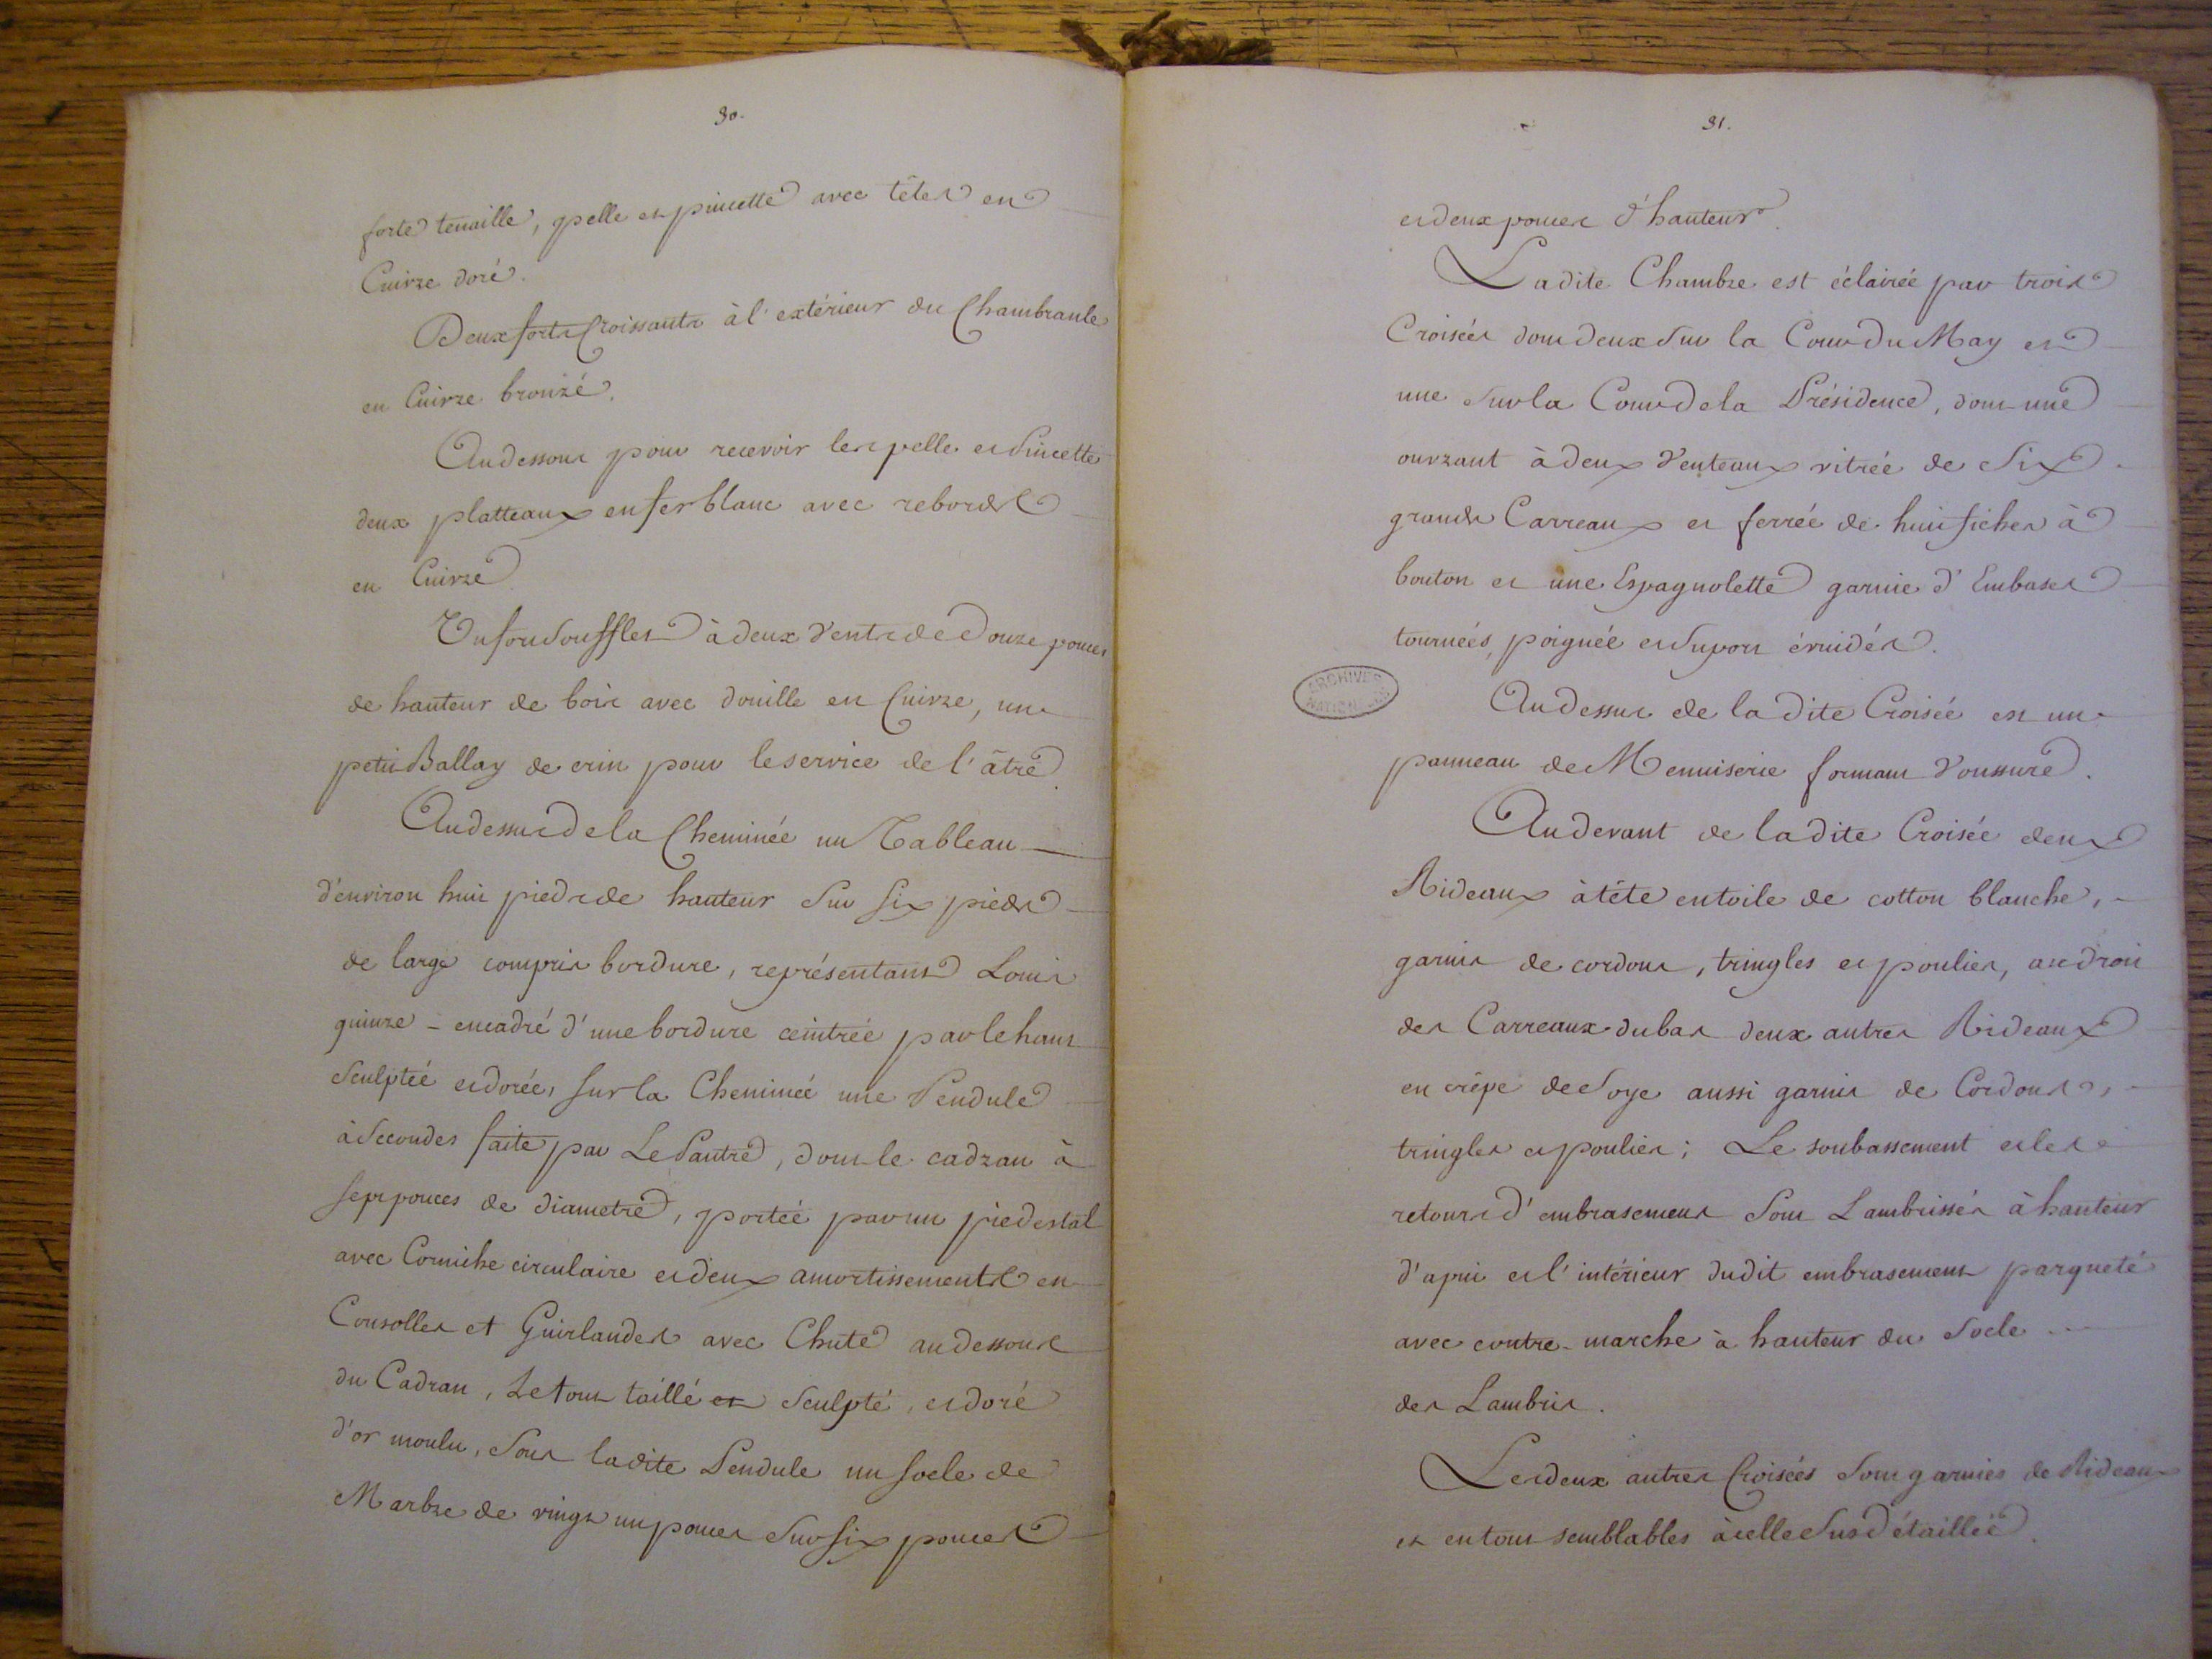 30.
forte tenaille, pelle et pincette avec têtes en
Cuivre doré.
Deux forts Croissants à l'extérieur du Chambranle
en Cuivre bronzé.
Au dessous pour recevoir les pelle et Pincette
deux platteaux en fer blanc avec rebords
en Cuivre
Un fort Soufflet à deux Vents de Douze pouces
de hauteur de bois avec douille en Cuivre, un
petit Ballay de crin pour le service de l'âtre.
Au dessus de la Cheminée un Tableau
d'environ huit pieds de hauteur Sur Six pieds
de large compris bordure, représentant Louis
quinze - encadré d'une bordure ceintrée par le haut
Sculptée et dorée, Sur la Cheminée une Pendule
à Secondes faite par Le Pautre, dont le cadran à
Sept pouces de diametre, portée par un piedestal
avec Corniche circulaire et deux amortissements en
Consolles et Guirlandes avec Chute au dessous
du Cadran, Le tout taillé et Sculpté, et doré
d'or moulu, Sous ladite Pendule un Socle de
Marbre de vingt un pouces Sur Six pouces
31.
et deux pouces d'hauteur.
La dite Chambre est éclairée par trois
Croisées dont deux Sur la Cour du May et
une Sur la Cour de la Présidence, dont une
ouvrant à deux Venteaux vitrée de Six
grands Carreaux et ferrée de huit fiches à
bouton et une Espagnolette garnie d'Embases
tournées, poignée et Suport évuidés.
ARCHIVES
NATIONALES
Au dessus de la dite Croisée est un
panneau de Menuiserie formant Voussure.
Au devant de la dite Croisée deux
Rideaux à tête en toile de cotton blanche,
garnis de cordons, tringles et poulies, au droit
des Carreaux du bas deux autres Rideaux
en crêpe de Soye aussi garnis de Cordons,
tringles et poulies; Le soubassement et les
retours d'embrasement Sont Lambrissés à hauteur
d'apui et l'intérieur dudit embrasement parqueté
avec contre-marche à hauteur du Socle
des Lambris.
Les deux autres Croisées Sont garnies de Rideaux
et en tout semblables à celle Sus Détaillée.